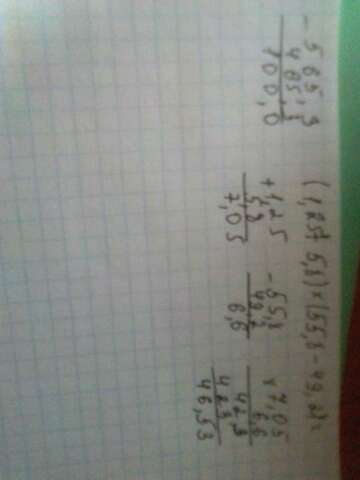 - 565,3
465,3
100,0
(1,25+5,8)×(55,8-49,2)=
+1,25
5,8
7,05
-55,8
49,2
6,6
×7,05
6,6
42,3
423
46,53